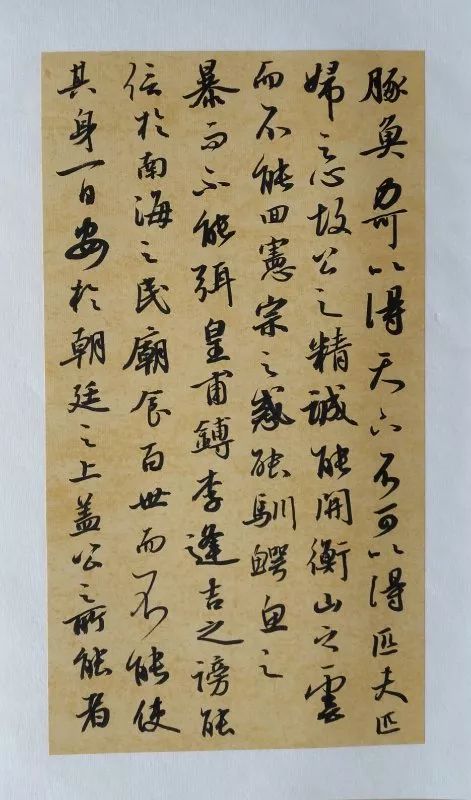 豚魚力可以得天下不可以得匹夫匹
婦之心故公之精誠能開衡山之雲
而不能回憲宗之惑能馴鰐魚之
暴而不能弭皇甫鎛李逢吉之謗能
信於南海之民廟食百世而不能使
其身一日安於朝廷之上蓋公之所能者